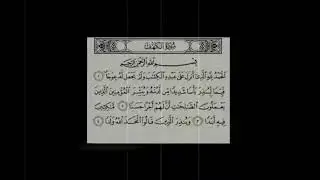 سورة الكهف
بسم الله الرحمن الرحيم
الحمد لله الذي أنزل على عبده الكتب ولم يجعل له عوجا ١
قيما لينذر بأسا شديدا من لدنه ويبشر المؤمنين الذين
يعملون الصلحت أن لهم أجرا حسنا ٢ مكثين
فيه أبدا ٣ وينذر الذين قالوا اتخذ الله ولدا ٤